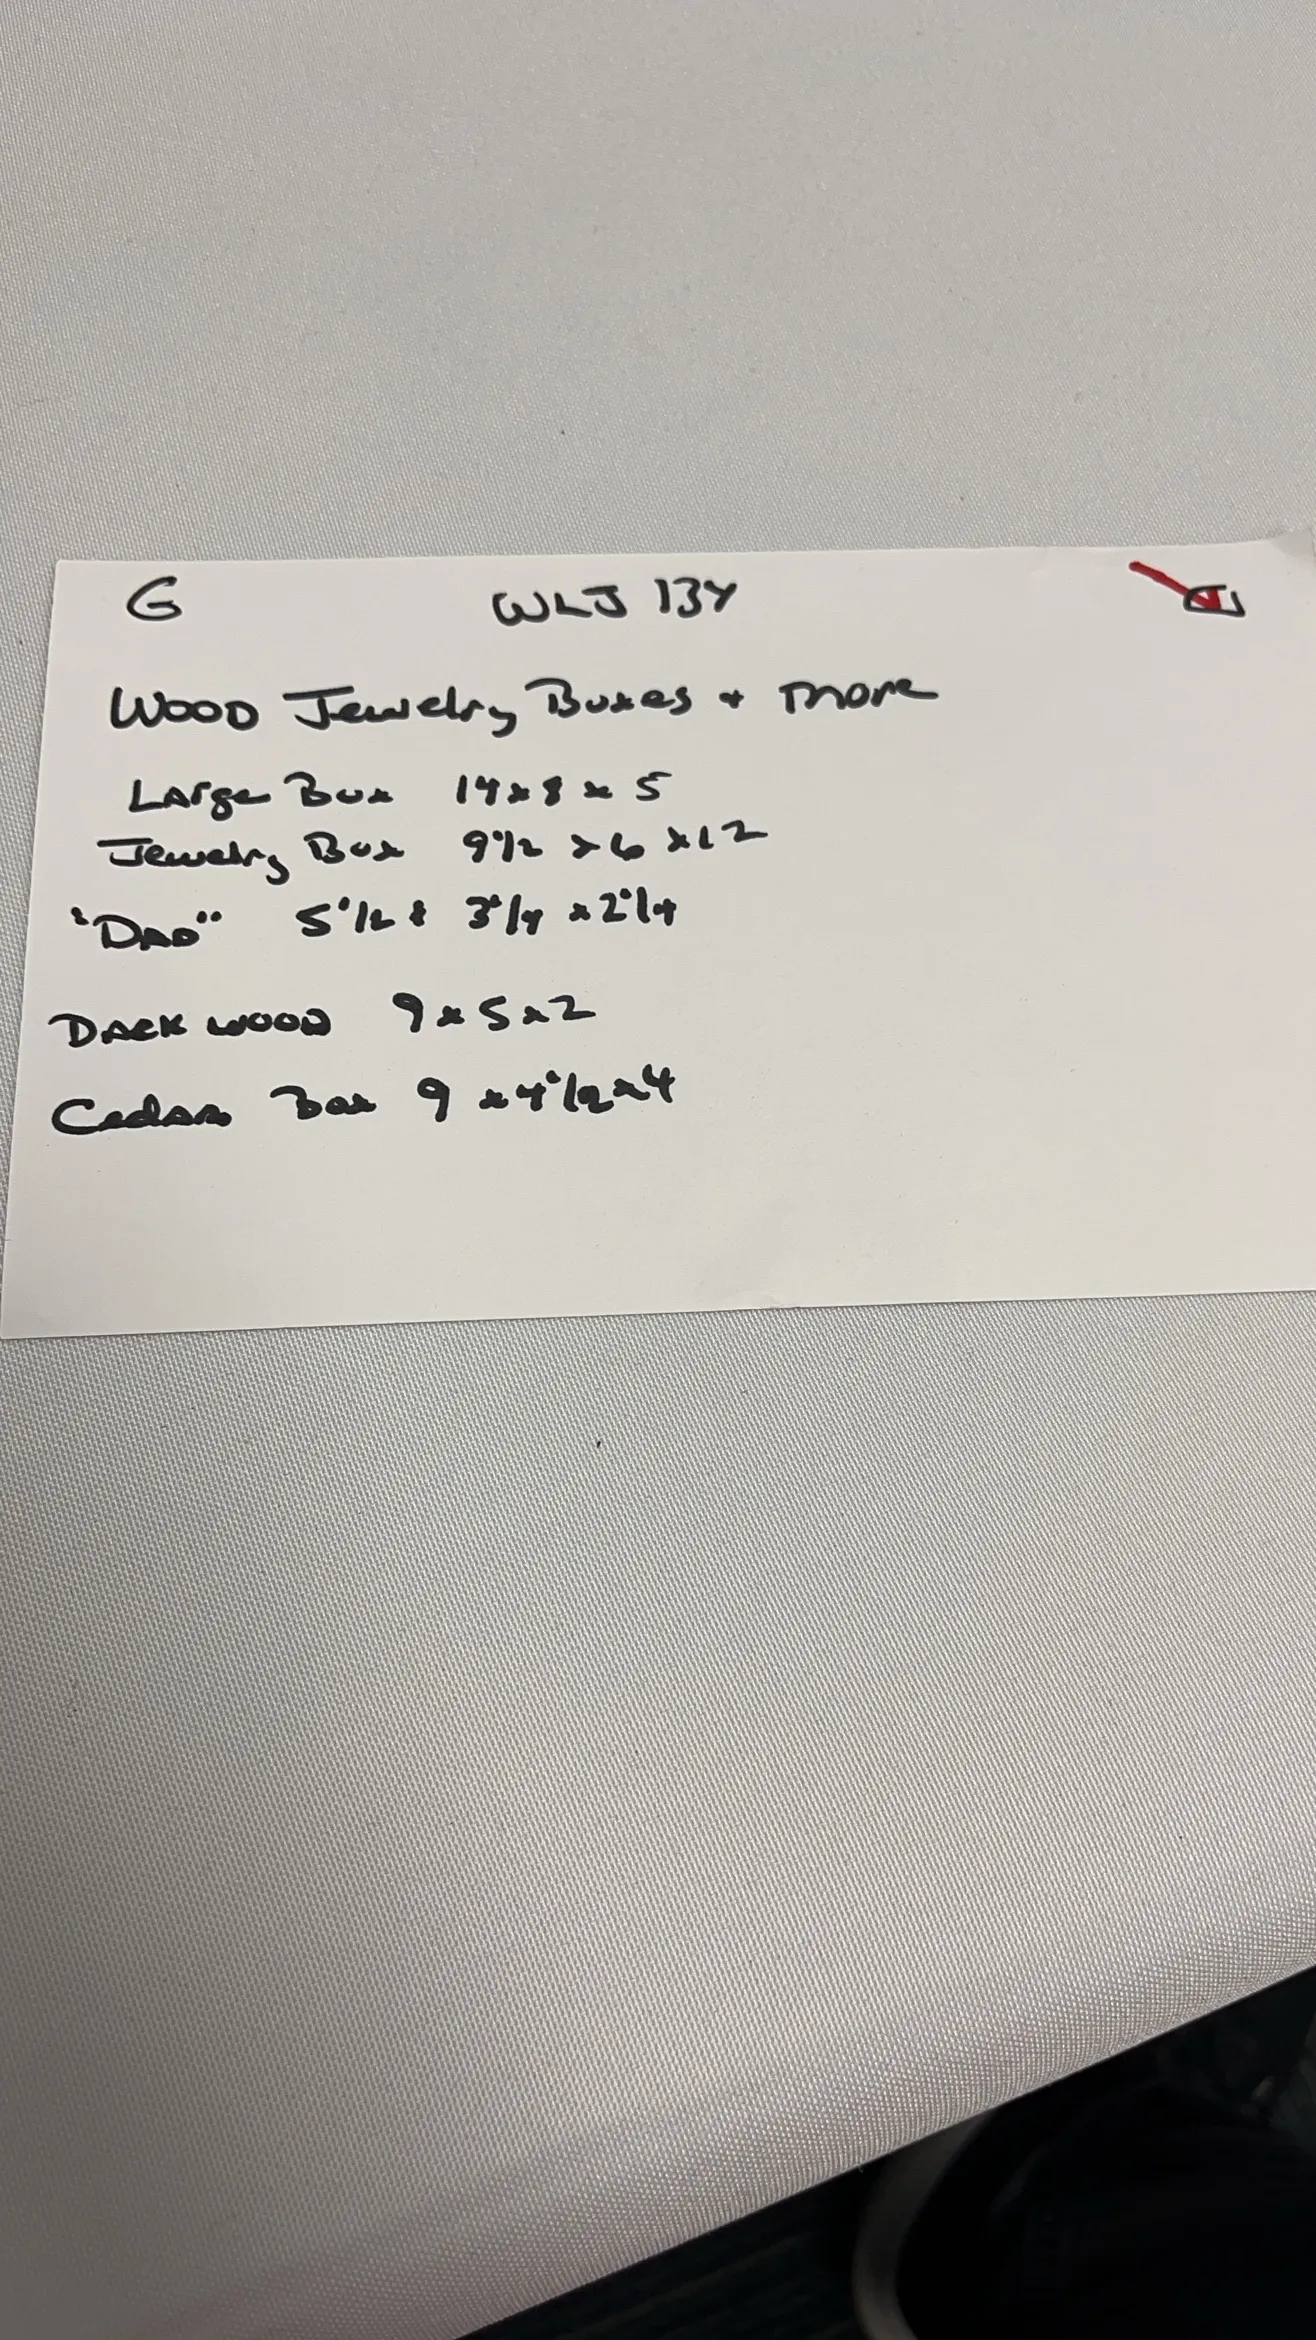 G WLJ 134
Wood Jewelry Boxes + more
Large Box 14 x 8 x 5
Jewelry Box 9 1/2 x 6 x 12
"DAD" 5 1/2 x 3 1/4 x 2 1/4
DARK WOOD 9 x 5 x 2
Cedar Box 9 x 4 1/2 x 4